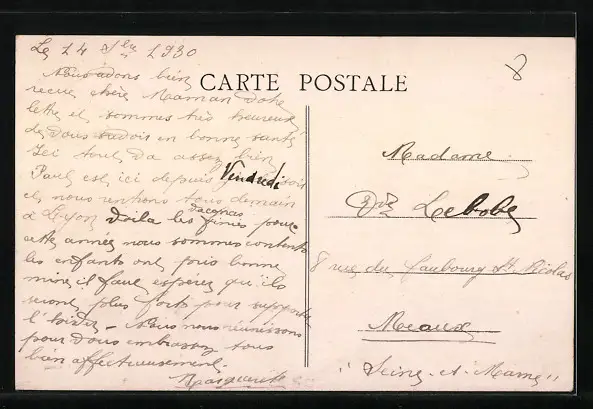 Le 14 7bre 1930
Nous avons bien
CARTE POSTALE
reçu chère Maman votre
lettre et sommes très heureux
de vous savoir en bonne santé
Ici tout va assez bien
Paul est ici depuis Vendredi soir
et nous rentrons tous demain
à Lyon Voila les vacances finies pour
cette année nous sommes contents
les enfants ont pris bonne
mine, il faut espérer qu'ils
seront plus forts pour supporter
l'hiver - Nous nous réunissons
pour vous embrasser tous
bien affectueusement.
Marguerite
8
Madame
Vve Lebobe
8 rue du faubourg St. Nicolas
Meaux
"Seine-et-Marne"